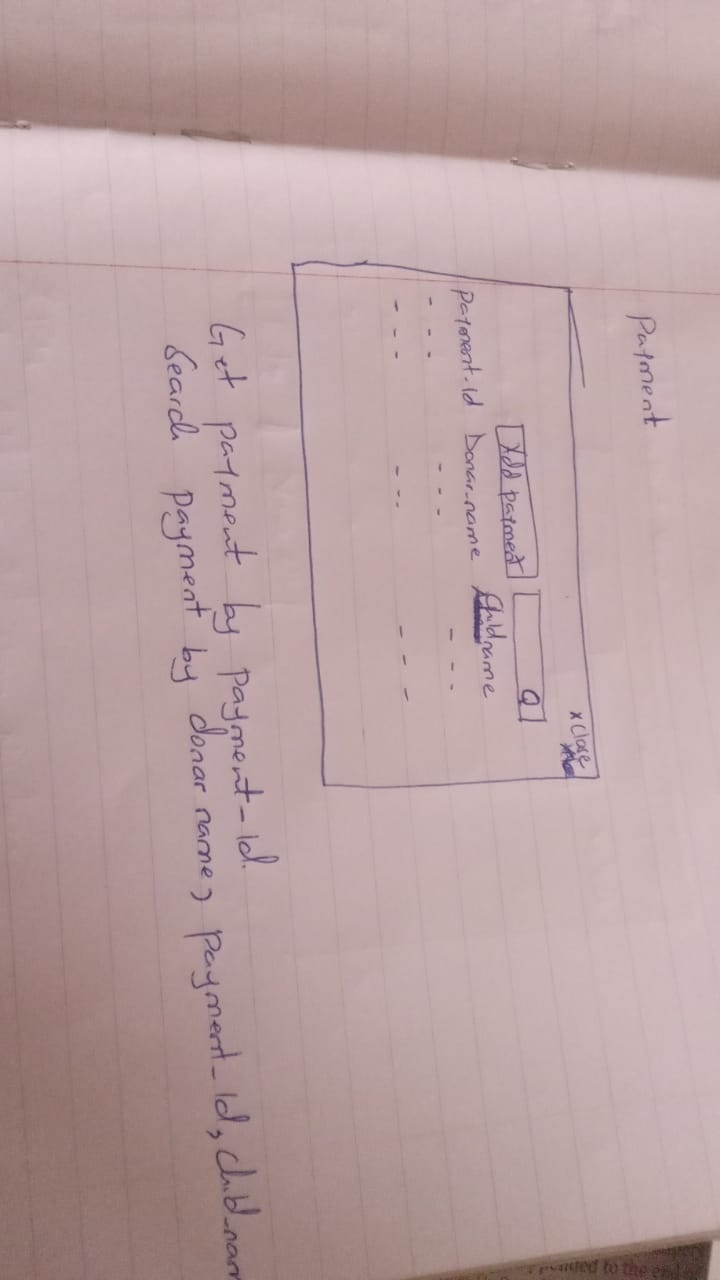 Payment
x Close
Add payment
Payment-id Donar-name Child name
- - - - - - - - -
- - - - - - - - -
Get payment by payment-id.
Search payment by donar name, payment-id, child-nam
to the